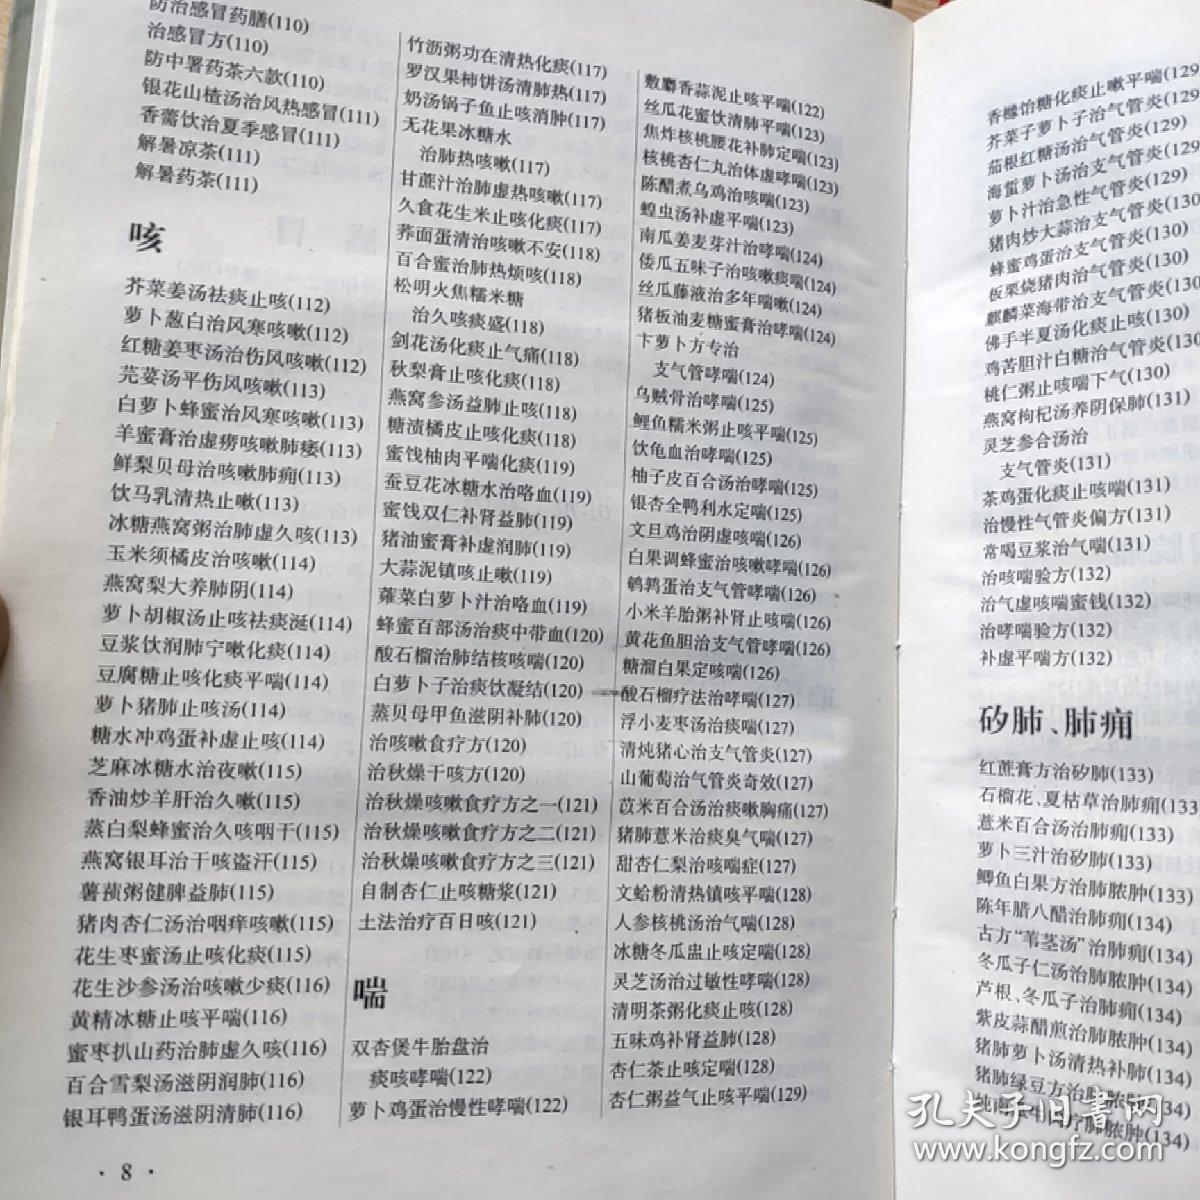 防治感冒药膳(110)
治感冒方(110)
防中暑药茶六款(110)
银花山楂汤治风热感冒(111)
香薷饮治夏季感冒(111)
解暑凉茶(111)
解暑药茶(111)
咳
芥菜姜汤祛痰止咳(112)
萝卜葱白治风寒咳嗽(112)
红糖姜枣汤治伤风咳嗽(112)
芫荽汤平伤风咳嗽(113)
白萝卜蜂蜜治风寒咳嗽(113)
羊蜜膏治虚痨咳嗽肺痿(113)
鲜梨贝母治咳嗽肺痈(113)
饮马乳清热止嗽(113)
冰糖燕窝粥治肺虚久咳(113)
玉米须橘皮治咳嗽(114)
燕窝梨大养肺阴(114)
萝卜胡椒汤止咳祛痰涎(114)
豆浆饮润肺宁嗽化痰(114)
豆腐糖止咳化痰平喘(114)
萝卜猪肺止咳汤(114)
糖水冲鸡蛋补虚止咳(114)
芝麻冰糖水治夜嗽(115)
香油炒羊肝治久嗽(115)
蒸白梨蜂蜜治久咳咽干(115)
燕窝银耳治干咳盗汗(115)
薯蓣粥健脾益肺(115)
猪肉杏仁汤治咽痒咳嗽(115)
花生枣蜜汤止咳化痰(115)
花生沙参汤治咳嗽少痰(116)
黄精冰糖止咳平喘(116)
蜜枣扒山药治肺虚久咳(116)
百合雪梨汤滋阴润肺(116)
银耳鸭蛋汤滋阴清肺(116)
竹沥粥功在清热化痰(117)
罗汉果柿饼汤清肺热(117)
奶汤锅子鱼止咳消肿(117)
无花果冰糖水
治肺热咳嗽(117)
甘蔗汁治肺虚热咳嗽(117)
久食花生米止咳化痰(117)
荞面蛋清治咳嗽不安(118)
百合蜜治肺热烦咳(118)
松明火焦糯米糖
治久咳痰盛(118)
剑花汤化痰止气痛(118)
秋梨膏止咳化痰(118)
燕窝参汤益肺止咳(118)
糖渍橘皮止咳化痰(118)
蜜饯柚肉平喘化痰(119)
蚕豆花冰糖水治咯血(119)
蜜饯双仁补肾益肺(119)
猪油蜜膏补虚润肺(119)
大蒜泥镇咳止嗽(119)
蕹菜白萝卜汁治咯血(119)
蜂蜜百部汤治痰中带血(120)
酸石榴治肺结核咳喘(120)
白萝卜子治痰饮凝结(120)
蒸贝母甲鱼滋阴补肺(120)
治咳嗽食疗方(120)
治秋燥干咳方(120)
治秋燥咳嗽食疗方之一(121)
治秋燥咳嗽食疗方之二(121)
治秋燥咳嗽食疗方之三(121)
自制杏仁止咳糖浆(121)
土法治疗百日咳(121)
喘
双杏煲牛胎盘治
痰咳哮喘(122)
萝卜鸡蛋治慢性哮喘(122)
敷麝香蒜泥止咳平喘(122)
丝瓜花蜜饮清肺平喘(123)
焦炸核桃腰花补肺定喘(123)
核桃杏仁丸治体虚哮喘(123)
陈醋煮乌鸡治咳喘(123)
蝗虫汤补虚平喘(123)
南瓜姜麦芽汁治哮喘(124)
倭瓜五味子治咳嗽痰喘(124)
丝瓜藤液治多年喘嗽(124)
猪板油麦糖蜜膏治哮喘(124)
卞萝卜方专治
支气管哮喘(124)
乌贼骨治哮喘(125)
鲤鱼糯米粥止咳平喘(125)
饮龟血治哮喘(125)
柚子皮百合汤治哮喘(125)
银杏全鸭利水定喘(125)
文旦鸡治阴虚咳喘(126)
白果调蜂蜜治咳嗽哮喘(126)
鹌鹑蛋治支气管哮喘(126)
小米羊胎粥补肾止咳喘(126)
黄花鱼胆治支气管哮喘(126)
糖溜白果定咳喘(126)
酸石榴疗法治哮喘(127)
浮小麦枣汤治痰喘(127)
清炖猪心治支气管炎(127)
山葡萄治气管炎奇效(127)
苡米百合汤治痰嗽胸痛(127)
猪肺薏米治痰臭气喘(127)
甜杏仁梨治咳喘症(127)
文蛤粉清热镇咳平喘(128)
人参核桃汤治气喘(128)
冰糖冬瓜盅止咳定喘(128)
灵芝汤治过敏性哮喘(128)
清明茶粥化痰止咳(128)
五味鸡补肾益肺(128)
杏仁茶止咳定喘(128)
杏仁粥益气止咳平喘(129)
· 8 ·
香橼饴糖化痰止嗽平喘(129
芥菜子萝卜子治气管炎(129
茄根红糖汤治气管炎(129)
海蜇萝卜汤治支气管炎(129
萝卜汁治急性气管炎(129)
猪肉炒大蒜治支气管炎(130
蜂蜜鸡蛋治支气管炎(130)
板栗烧猪肉治气管炎(130)
麒麟菜海带治支气管炎(130
佛手半夏汤化痰止咳(130)
鸡苦胆汁白糖治气管炎(130
桃仁粥止咳喘下气(130)
燕窝枸杞汤养阴保肺(131)
灵芝参合汤治
支气管炎(131)
茶鸡蛋化痰止咳喘(131)
治慢性气管炎偏方(131)
常喝豆浆治气喘(131)
治咳喘验方(132)
治气虚咳喘蜜饯(132)
治哮喘验方(132)
补虚平喘方(132)
矽肺、肺痈
红蔗膏方治矽肺(133)
石榴花、夏枯草治肺痈(133
薏米百合汤治肺痈(133)
萝卜三汁治矽肺(133)
鲫鱼白果方治肺脓肿(133)
陈年腊八醋治肺痈(134)
古方“苇茎汤”治肺痈(134)
冬瓜子仁汤治肺脓肿(134)
芦根、冬瓜子治肺痈(134)
紫皮蒜醋煎治肺脓肿(134)
猪肺萝卜汤清热补肺(134)
猪肺绿豆方治肺脓肿(134)
疗肺脓肿(134)
孔夫子旧书网
www.kongfz.com